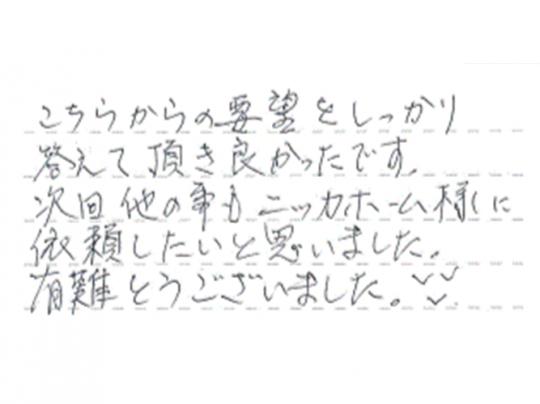 こちらからの要望をしっかり
答えて頂き良かったです。
次回他の事もニッカホーム様に
依頼したいと思いました。
有難とうございました。